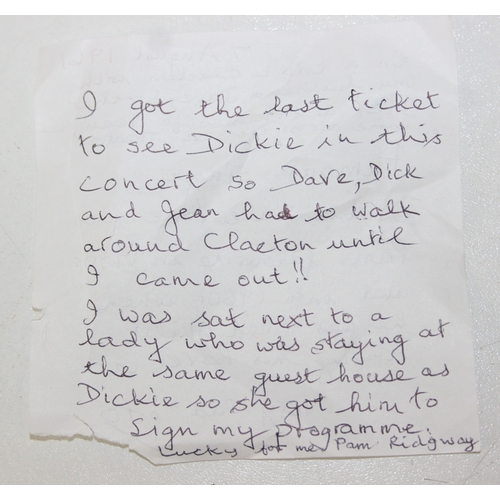 I got the last ticket
to see Dickie in this
concert so Dave, Dick
and Jean had to walk
around Clacton until
I came out!!
I was sat next to a
lady who was staying at
the same guest house as
Dickie so she got him to
sign my programme.
Lucky for me Pam Ridgway